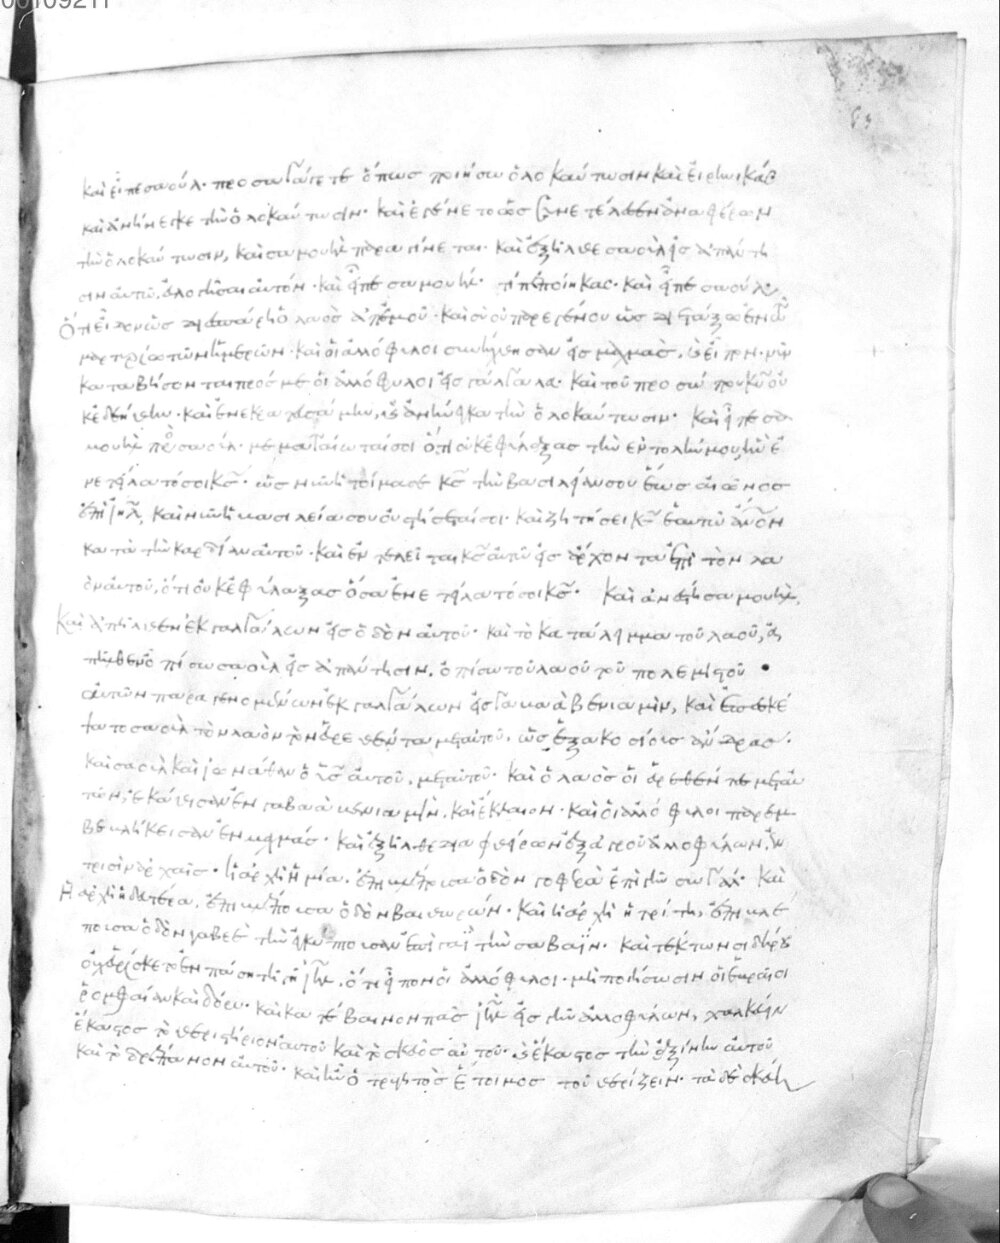 00109211
καὶ εἶπε σαούλ· προσαγάγετε ὅπως ποιήσω ὁλοκαύτωσιν καὶ εἰρηνικάς
καὶ ἀνήνεγκε τὴν ὁλοκαύτωσιν· καὶ ἐγένετο ὡς συνετέλεσεν ἀναφέρων
τὴν ὁλοκαύτωσιν, καὶ σαμουὴλ παραγίνεται· καὶ ἐξῆλθε σαοὺλ εἰς ἀπάντη
σιν αὐτῷ, εὐλογῆσαι αὐτόν· καὶ εἶπε σαμουήλ· τί πεποίηκας· καὶ εἶπε σαούλ
ὅτι εἶδον ὡς διεσπάρη ὁ λαὸς ἀπ' ἐμοῦ· καὶ σὺ οὐ παρεγένου ὡς διετάξω ἐν τῷ
μαρτυρίῳ τῶν ἡμερῶν· καὶ οἱ ἀλλόφυλοι συνήχθησαν εἰς μαχμὰς, καὶ εἶπον· νῦν
καταβήσονται πρός με οἱ ἀλλόφυλοι εἰς γάλγαλα· καὶ τοῦ προσώπου κυ οὐ
κ ἐδεήθην· καὶ ἐνεκρατευσάμην, καὶ ἀνήνεγκα τὴν ὁλοκαύτωσιν· καὶ εἶπε σα
μουὴλ πρὸς σαούλ· μεματαίωταί σοι ὅτι οὐκ ἐφύλαξας τὴν ἐντολήν μου ἣν ἐ
νετείλατό σοι κς· ὡς νῦν ἡτοίμασε κς τὴν βασιλείαν σου ἕως αἰῶνος
ἐπὶ ιηλ, καὶ νῦν ἡ βασιλεία σου οὐ στήσεταί σοι· καὶ ζητήσει κς ἑαυτῷ ἀνον
κατὰ τὴν καρδίαν αὐτοῦ· καὶ ἐντελεῖται κς αὐτῷ εἰς ἄρχοντα ἐπὶ τὸν λα
ὸν αὐτοῦ, ὅτι οὐκ ἐφύλαξας ὅσα ἐνετείλατό σοι κς· καὶ ἀνέστη σαμουὴλ
καὶ ἀπῆλθεν ἐκ γαλγάλων εἰς ὁδὸν αὐτοῦ· καὶ τὸ κατάλειμμα τοῦ λαοῦ, ἀ
πῆλθεν ὀπίσω σαοὺλ εἰς ἀπάντησιν, ὀπίσω τοῦ λαοῦ τοῦ πολεμιστοῦ·
αὐτῶν παραγενομένων ἐκ γαλγάλων εἰς γαβαὰ βενιαμὶν, καὶ ἐπεσκέ
ψατο σαοὺλ τὸν λαὸν τὸν εὑρεθέντα μετ' αὐτοῦ, ὡς ἑξακοσίους ἄνδρας·
καὶ σαοὺλ καὶ ἰωνάθαν ὁ υς αὐτοῦ, μετ' αὐτοῦ· καὶ ὁ λαὸς οἱ εὑρεθέντες μετ' αὐ
τῶν, ἐκάθισαν ἐν γαβαὰ βενιαμὶν, καὶ ἔκλαιον· καὶ οἱ ἀλλόφυλοι παρεμ
βεβλήκεισαν ἐν μαχμάς· καὶ ἐξῆλθε διαφθείρων ἐξ ἀγροῦ ἀλλοφύλων, ἐν
τρισὶν ἀρχαῖς· ἡ ἀρχὴ ἡ μία, ἐπιβλέπουσα ὁδὸν γοφερὰ ἐπὶ γῆν σωγάλ· καὶ
ἡ ἀρχὴ ἡ δευτέρα, ἐπιβλέπουσα ὁδὸν βαιθωρών· καὶ ἡ ἀρχὴ ἡ τρίτη, ἐπιβλέ
πουσα ὁδὸν γαβεὲ τὴν εἰσκύπτουσαν ἐπὶ γαὶ τὴν σαβαΐν· καὶ τέκτων σιδήρου
οὐχ εὑρίσκετο ἐν πάσῃ γῇ ιηλ, ὅτι εἶπον οἱ ἀλλόφυλοι· μὴ ποιήσωσιν οἱ ἑβραῖοι
ῥομφαίαν καὶ δόρυ· καὶ κατέβαινον πᾶς ιηλ εἰς γῆν ἀλλοφύλων, χαλκεύειν
ἕκαστος τὸ θεριστήριον αὐτοῦ καὶ τὸ σκεῦος αὐτοῦ· καὶ ἕκαστος τὴν ἀξίνην αὐτοῦ
καὶ τὸ δρέπανον αὐτοῦ· καὶ ἦν ὁ τρυγητὸς ἕτοιμος τοῦ θερίζειν· τὰ δὲ σκεύη